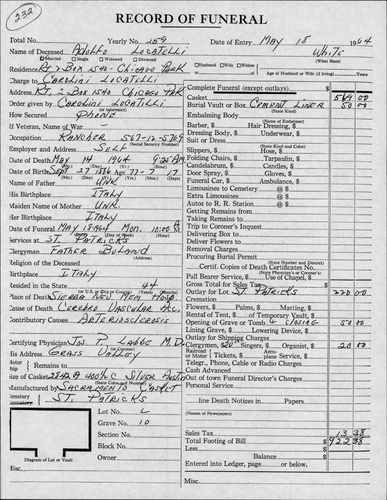 232
RECORD OF FUNERAL
Total No. Yearly No. 259 Date of Entry MAY 18 1964
Name of Deceased ADOLFO LOCATELLI WHITE
Married Single Widowed Divorced
Husband Wife Widow Age of Husband or Wife (if living) Years
Residence RT. 2 BOX 1540 - CHICAGO PARK
Charge to CAROLINI LOCATELLI
Address RT. 2 BOX 1540 CHICAGO PARK
Order given by CAROLINI LOCATILLI
How Secured PHONE
If Veteran, Name of War
Occupation RANCHER 567-12-5709
(Social Security Number)
Employer and Address SELF
Date of Death MAY 14 1964 9:25 AM
Date of Birth SEPT 27 1886 Age 77-7 17
(Yrs.) (Mos.) (Days)
Name of Father UNK.
His Birthplace ITALY
Maiden Name of Mother UNK.
Her Birthplace ITALY
Date of Funeral MAY 18 1964 MON. 10:00 A
Services at ST. PATRICKS
Clergyman FATHER BOLAND
(Address)
Religion of the Deceased
Birthplace ITALY
Resided in the State 44
(or U.S. or City or County) (Years) (Months)
Place of Death SIERRA NEV MEM. HOSP.
Cause of Death CEREBRO VASCULAR AC.
Contributory Causes ARTERIOSCLEROSIS
Certifying Physician JOS. P LABBE M.D.
His Address GRASS VALLEY
Remains to
Size of Casket
Manufactured by SACRAMENTO CASKET
Cemetery ST. PATRICKS
Lot No. L
Grave No. 10
Section No.
Block No.
Owner
Diagram of Lot or Vault
Misc.
Complete Funeral (except outlays) $
Casket 569 00
Burial Vault or Box CEMENT LINER 50 00
(State Kind)
Embalming Body
(Name of Embalmer)
Barber, $ Hair Dressing, $
Dressing Body, $ Underwear, $
Suit or Dress
(State Kind and Color)
Slippers, $ Hose, $
Folding Chairs, $ Tarpaulin, $
Candelabrum, $ Candles, $
Door Spray, $ Gloves, $
Funeral Car, $ Ambulance, $
Limousines to Cemetery @ $
Extra Limousines @ $
Autos to R. R. Station @ $
Getting Remains from
Taking Remains to
Trip to Coroner's Inquest
Delivering Box to
Deliver Flowers to
Removal Charges
Procuring Burial Permit
(State Number and District)
Certif. Copies of Death Certificates No.
Pall Bearer Service, $ Use of Chapel, $
Gross Total for Sales Tax $
Outlay for Lot ST. PATRICKS 220 00
Cremation
Flowers, $ Palms, $ Matting, $
Rental of Tent, $ of Temporary Vault, $
Opening of Grave or Tomb & CLOSING 50 00
Lining Grave, $ Lowering Device, $
Outlay for Shipping Charges
Clergymen, $20 Singers, $ Organist, $ 20 00
Railroad or Motor Tickets, $ Aeroplane Service, $
Telegr., Phone, Cable or Radio Charges
Cash Advanced
Out of town Funeral Director's Charges
Personal Service
line Death Notices in Papers
(Names of Newspapers)
Sales Tax 13 38
Total Footing of Bill $922 38
Less
Balance $
Entered into Ledger, page or below.
Misc.